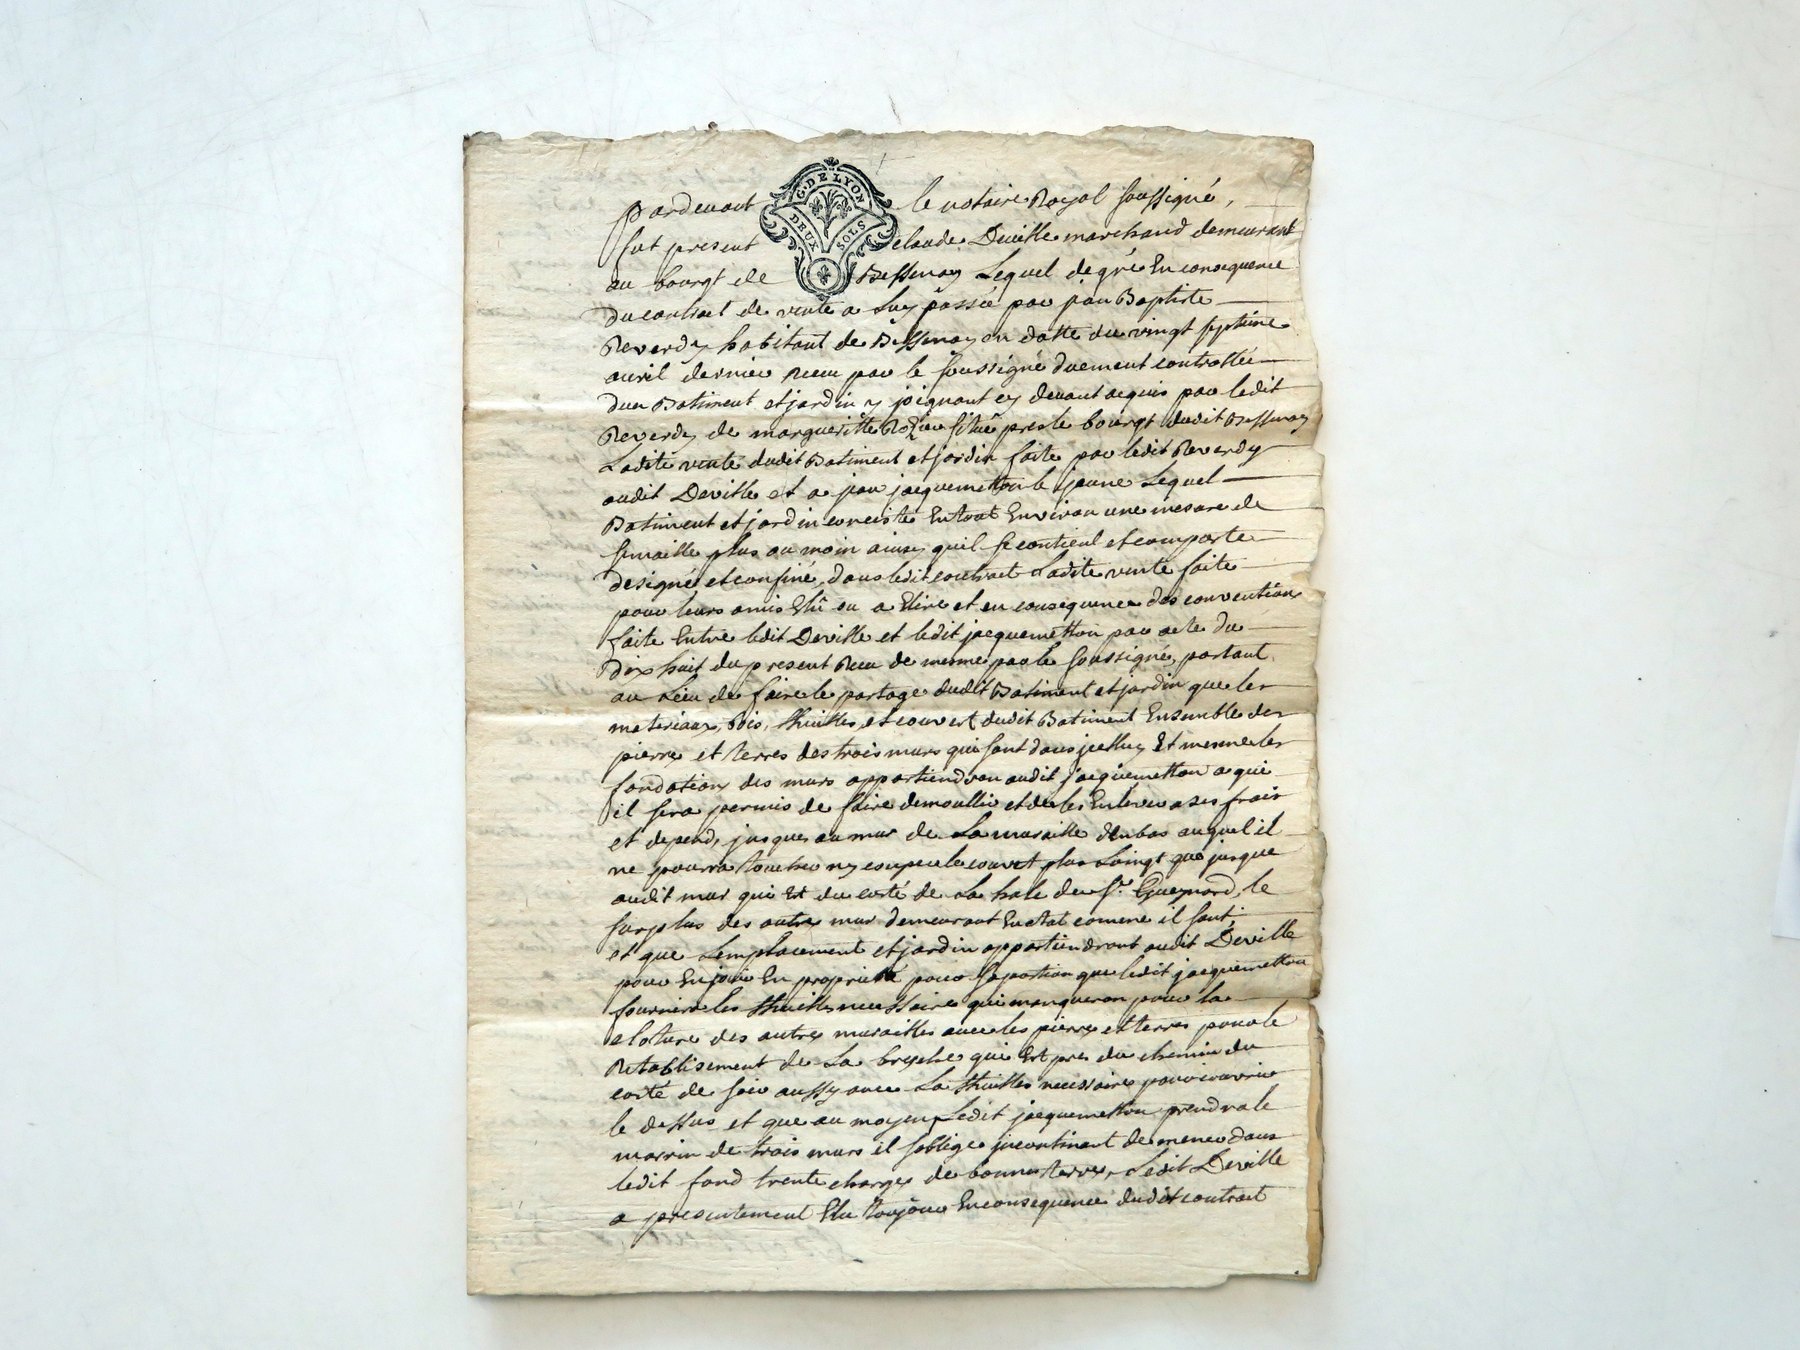 G. DE LYON
DEUX SOLS
Pardevant le notaire Royal soussigné,
fut present claude Deville marchand demeurant
au bourgt de Bessenay Lequel de gré En consequence
du contract de vente a Luy passée par jean Baptiste
Reverdy habitant de Bessenay en datte du vingt septieme
avril dernier receu par le soussigné duement controllée
dun Batiment et jardin y joignant cy devant acquis par ledit
Reverdy de margueritte situé pres le bourgt dudit Bessenay
Ladite vente dudit Batiment et jardin faite par ledit Reverdy
audit Deville et a jean jacquemetton le jeune Lequel
Batiment et jardin conciste En tout Environ une mesure de
semaille plus ou moin ainsy quil se contient et comporte
designé et confiné dans ledit contract Ladite vente faite
pour leurs amis Elû ou a Elire et en consequence des convention
faite Entre ledit Deville et ledit jacquemetton par acte du
Dix huit du present Receu de mesme par le soussigné, portant
au Lieu de faire le partage dudit Batiment et jardin que les
materiaux, Bois, thuilles, et couvert dudit Batiment Ensemble des
pierre et terres des trois murs qui sont dans jcelluy Et mesme les
fondations des murs appartiendron audit jacquemetton a qui
il sera permis de faire demoullir et de les Enlever a ses frais
et depend, jusques au mur de La muraille d'enbas auquel il
ne pourra toucher ny couper le couvert plus Loingt que jusque
audit mur qui Est du costé de La hale du Sr. Gueynard, le
surplus des autre mur demeurant En Etat comme il sont
et que Lemplacement et jardin appartiendront audit Deville
pour En jouir En proprieté pour sa portion que ledit jacquemetton
fournira les thuilles necessaire qui manqueron pour la
cloture des autres murailles avec les pierre et terres pour le
Retablisement de La breche qui Est pres du chemin du
costé de soir aussy avec La thuilles necessaire pour couvrir
le dessus et que au moyen Ledit jacquemetton prendra le
marrin de trois murs il soblige jncontinant de mener dans
ledit fond trente charges de bonnes terre, Ledit Deville
a presentement Elu toujour En consequence dudit contract